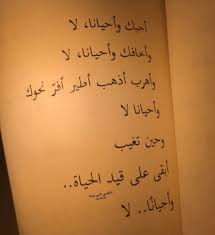 أحبك وأحيانا، لا
وأخافك وأحيانا، لا
وأهرب أذهب أطير أفرّ نحوك
وأحيانا لا
وحين تغيب
أبقى على قيد الحياة..
وأحيانًا.. لا